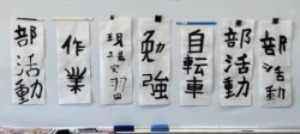 部活動
作業
現場実習
勉強
自転車
部活動
部活動